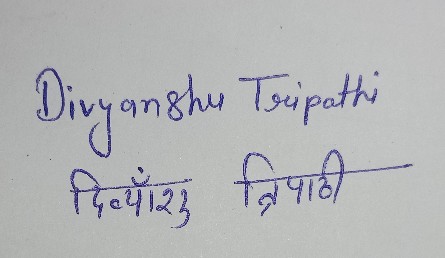 Divyanshu Tripathi
दिव्याँशु त्रिपाठी